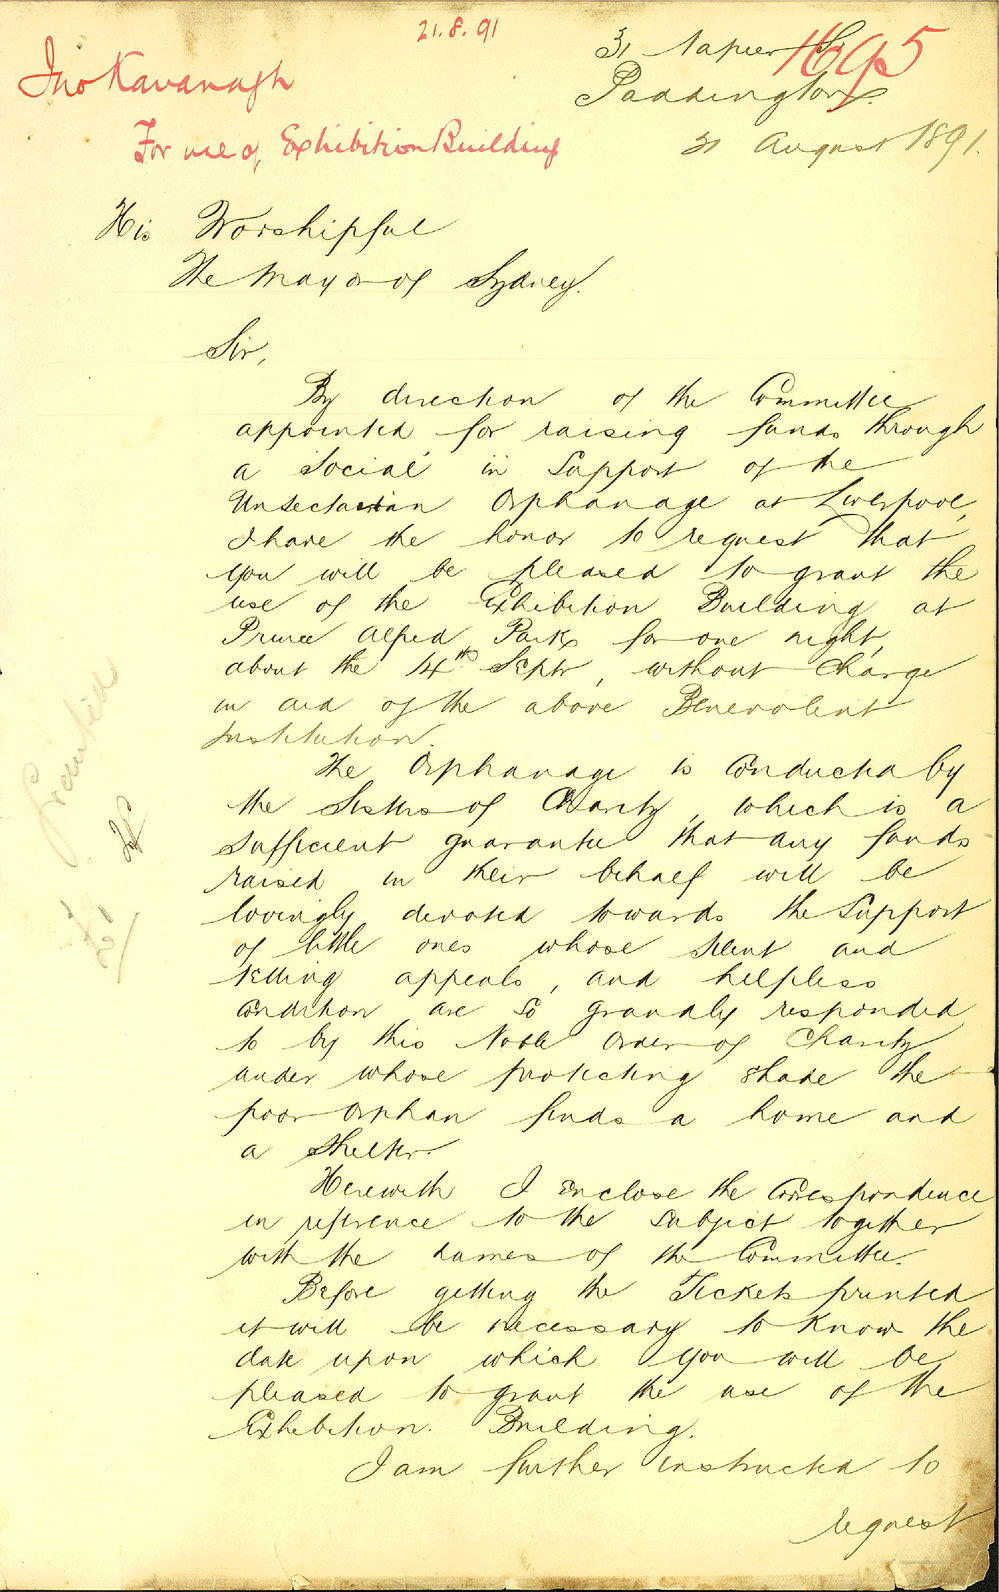 21.8.91
1695
Jno Kavanagh
For use of Exhibition Building
31 Napier St
Paddington.
31 August 1891.
His Worshipful
The Mayor of Sydney.
Sir,
By direction of the Committee
appointed for raising funds through
a Social in Support of the
Unsectarian Orphanage at Liverpool,
I have the honor to request that
you will be pleased to grant the
use of the Exhibition Building at
Prince Alfred Park for one night,
about the 14th Septr, without Charge
in aid of the above Benevolent
Institution.
The Orphanage is Conducted by
the Sisters of Charity, which is a
sufficient guarantee that any funds
raised in their behalf will be
lovingly devoted towards the Support
of little ones whose silent and
telling appeals, and helpless
condition are so grandly responded
to by this Noble Order of Charity
under whose protecting shade the
poor orphan finds a home and
a shelter.
Herewith I enclose the Correspondence
in reference to the subject together
with the names of the Committee.
Before getting the Tickets printed
it will be necessary to know the
date upon which you will be
pleased to grant the use of the
Exhibition. Building.
I am further instructed to
request
Granted